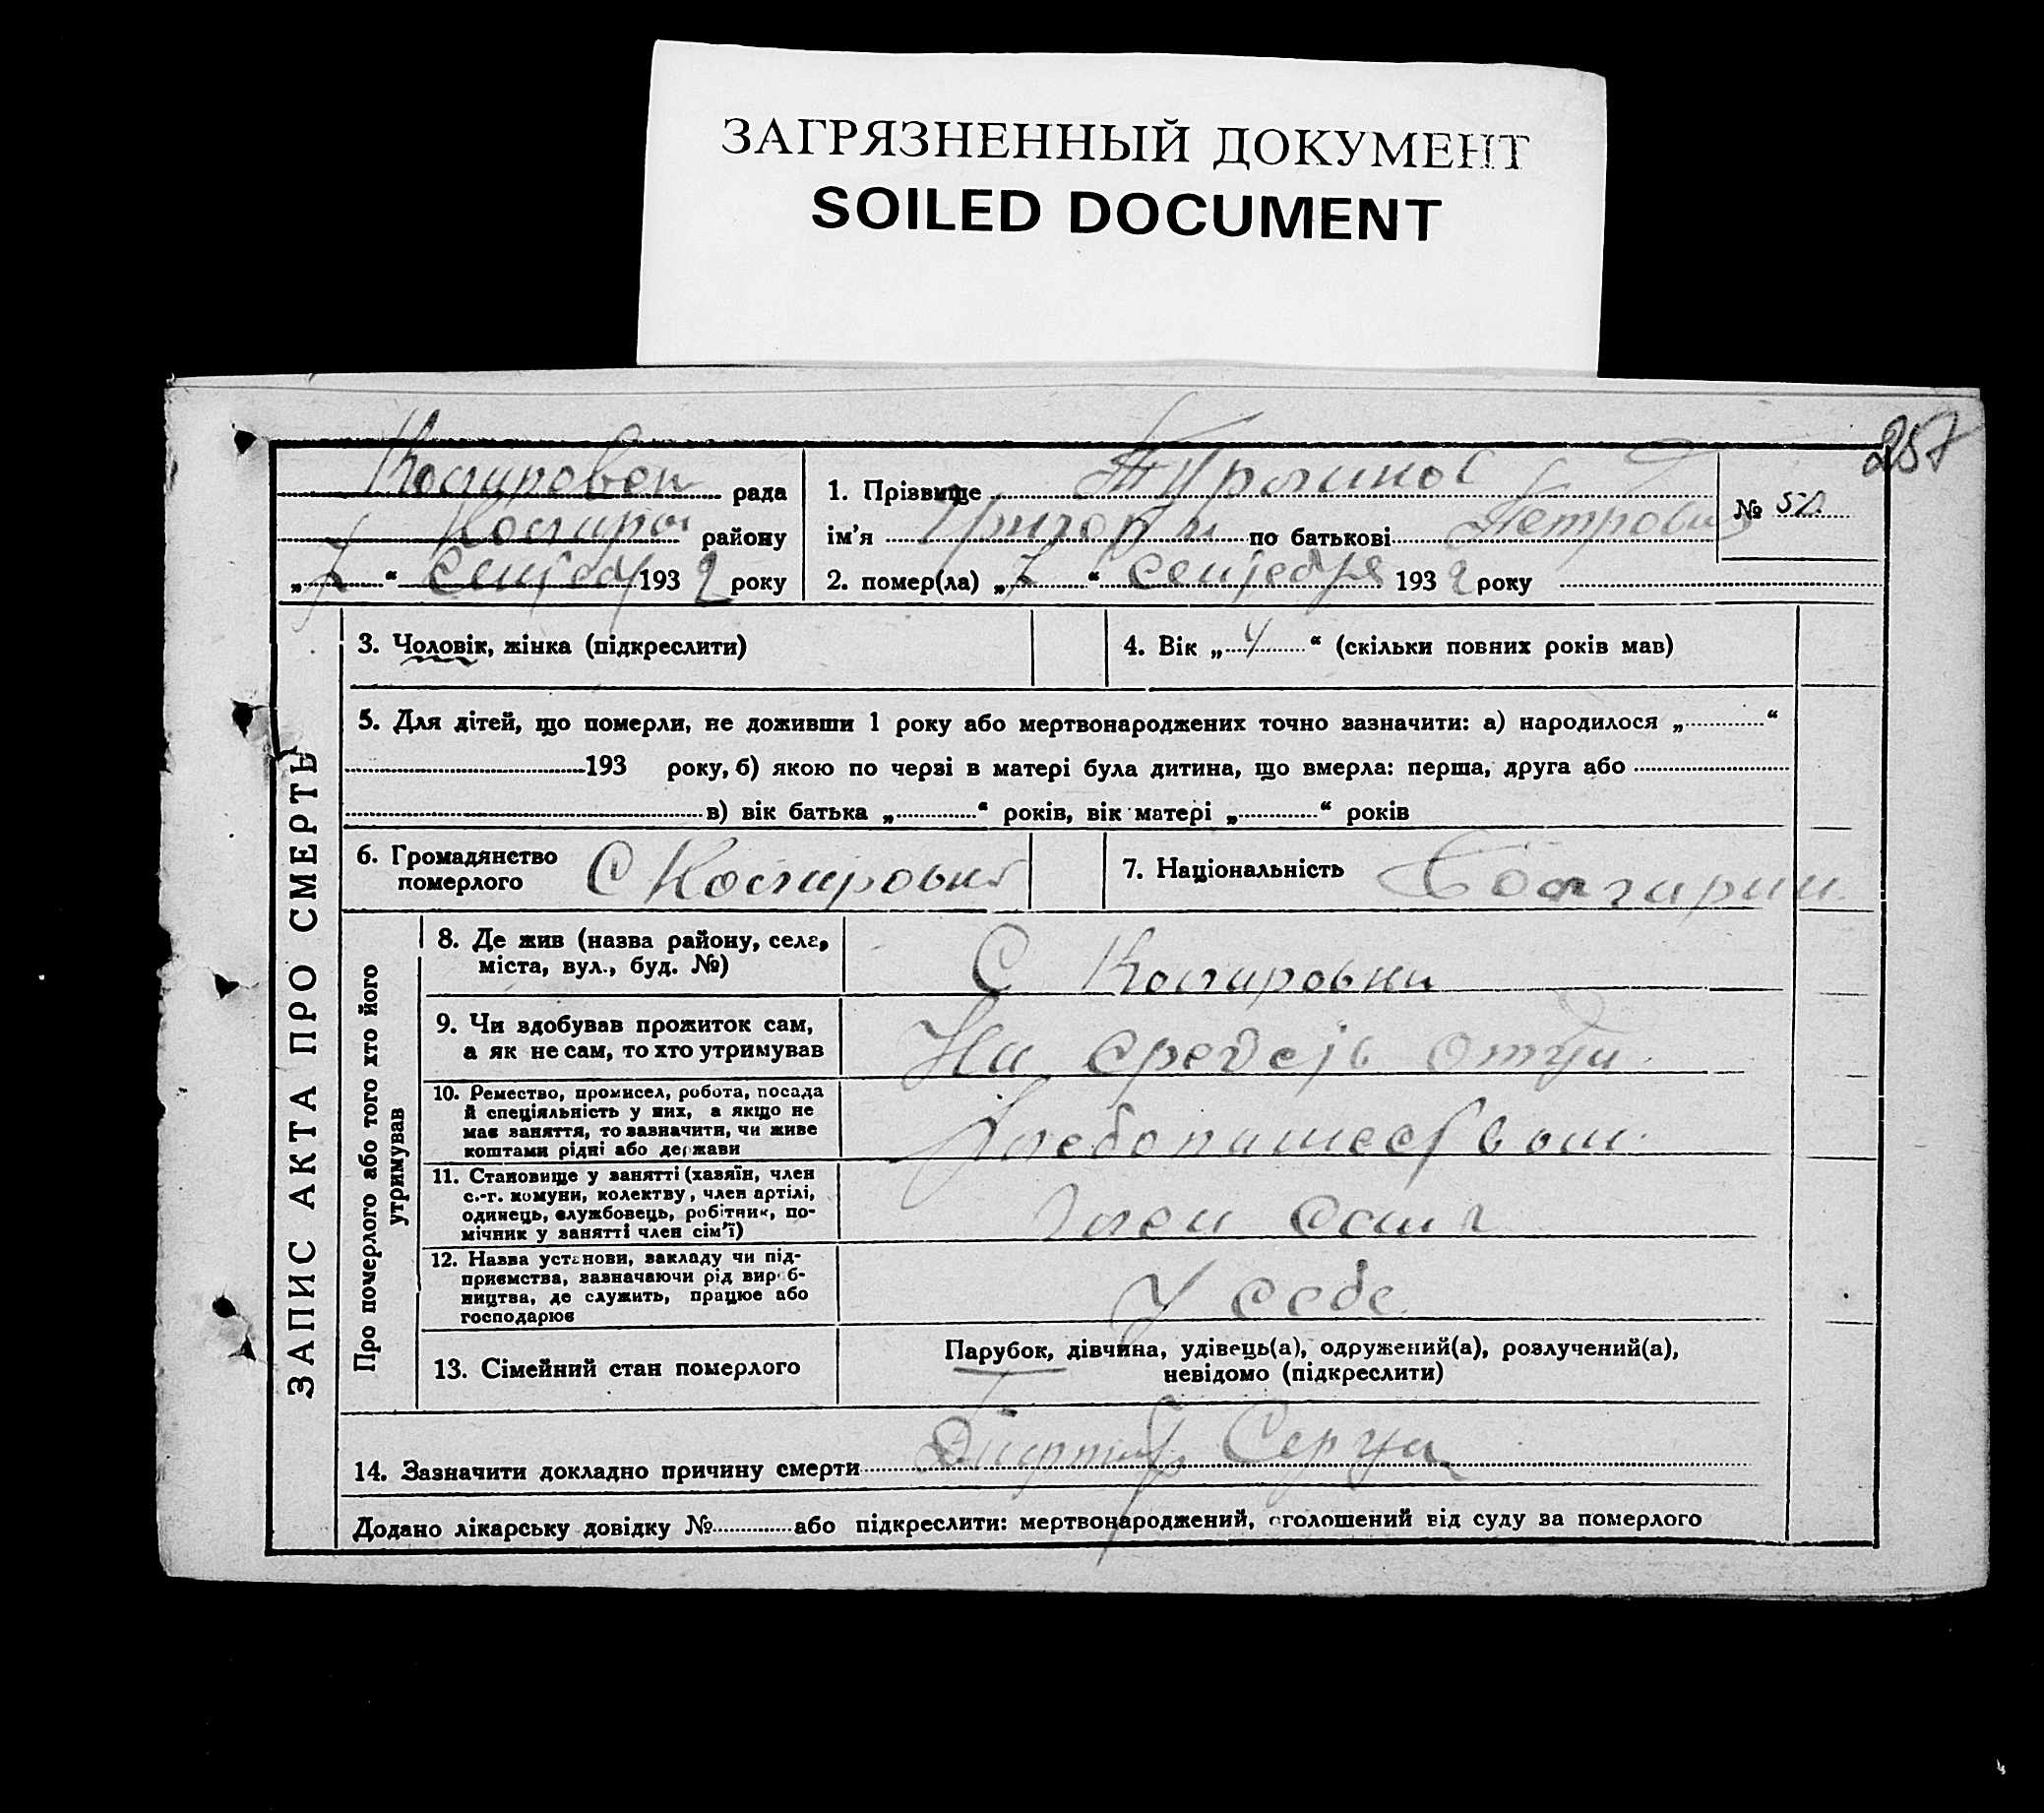 ЗАГРЯЗНЕННЫЙ ДОКУМЕНТ
SOILED DOCUMENT
257
рада
району
„ 7 “ 193 2 року
1. Прізвище
№ 50
ім’я Григорий по батькові Петрович
2. помер(ла) „ 7 “ сентебря 193 2 року
ЗАПИС АКТА ПРО СМЕРТЬ
3. Чоловік, жінка (підкреслити)
4. Вік „ 4 “ (скільки повних років мав)
5. Для дітей, що померли, не доживши 1 року або мертвонароджених точно зазначити: а) народилося „ “
193 року, б) якою по черзі в матері була дитина, що вмерла: перша, друга або
в) вік батька „ “ років, вік матері „ “ років
6. Громадянство
померлого
7. Національність
Про померлого або того хто його
утримував
8. Де жив (назва району, села,
міста, вул., буд. №)
9. Чи здобував прожиток сам,
а як не сам, то хто утримував
На отца
10. Ремество, промисел, робота, посада
й спеціяльність у них, а якщо не
має заняття, то зазначити, чи живе
коштами рідні або держави
11. Становище у занятті (хазяїн, член
с.-г. комуни, колектву, член артілі,
одинець, службовець, робітник, по-
мічник у занятті член сім’ї)
12. Назва установи, закладу чи під-
приємства, зазначаючи рід вироб-
ництва, де служить, працює або
господарює
У себе
13. Сімейний стан померлого
Парубок, дівчина, удівець(а), одружений(а), розлучений(а),
невідомо (підкреслити)
14. Зазначити докладно причину смерти Серца
Додано лікарську довідку № або підкреслити: мертвонароджений, оголошений від суду за померлого